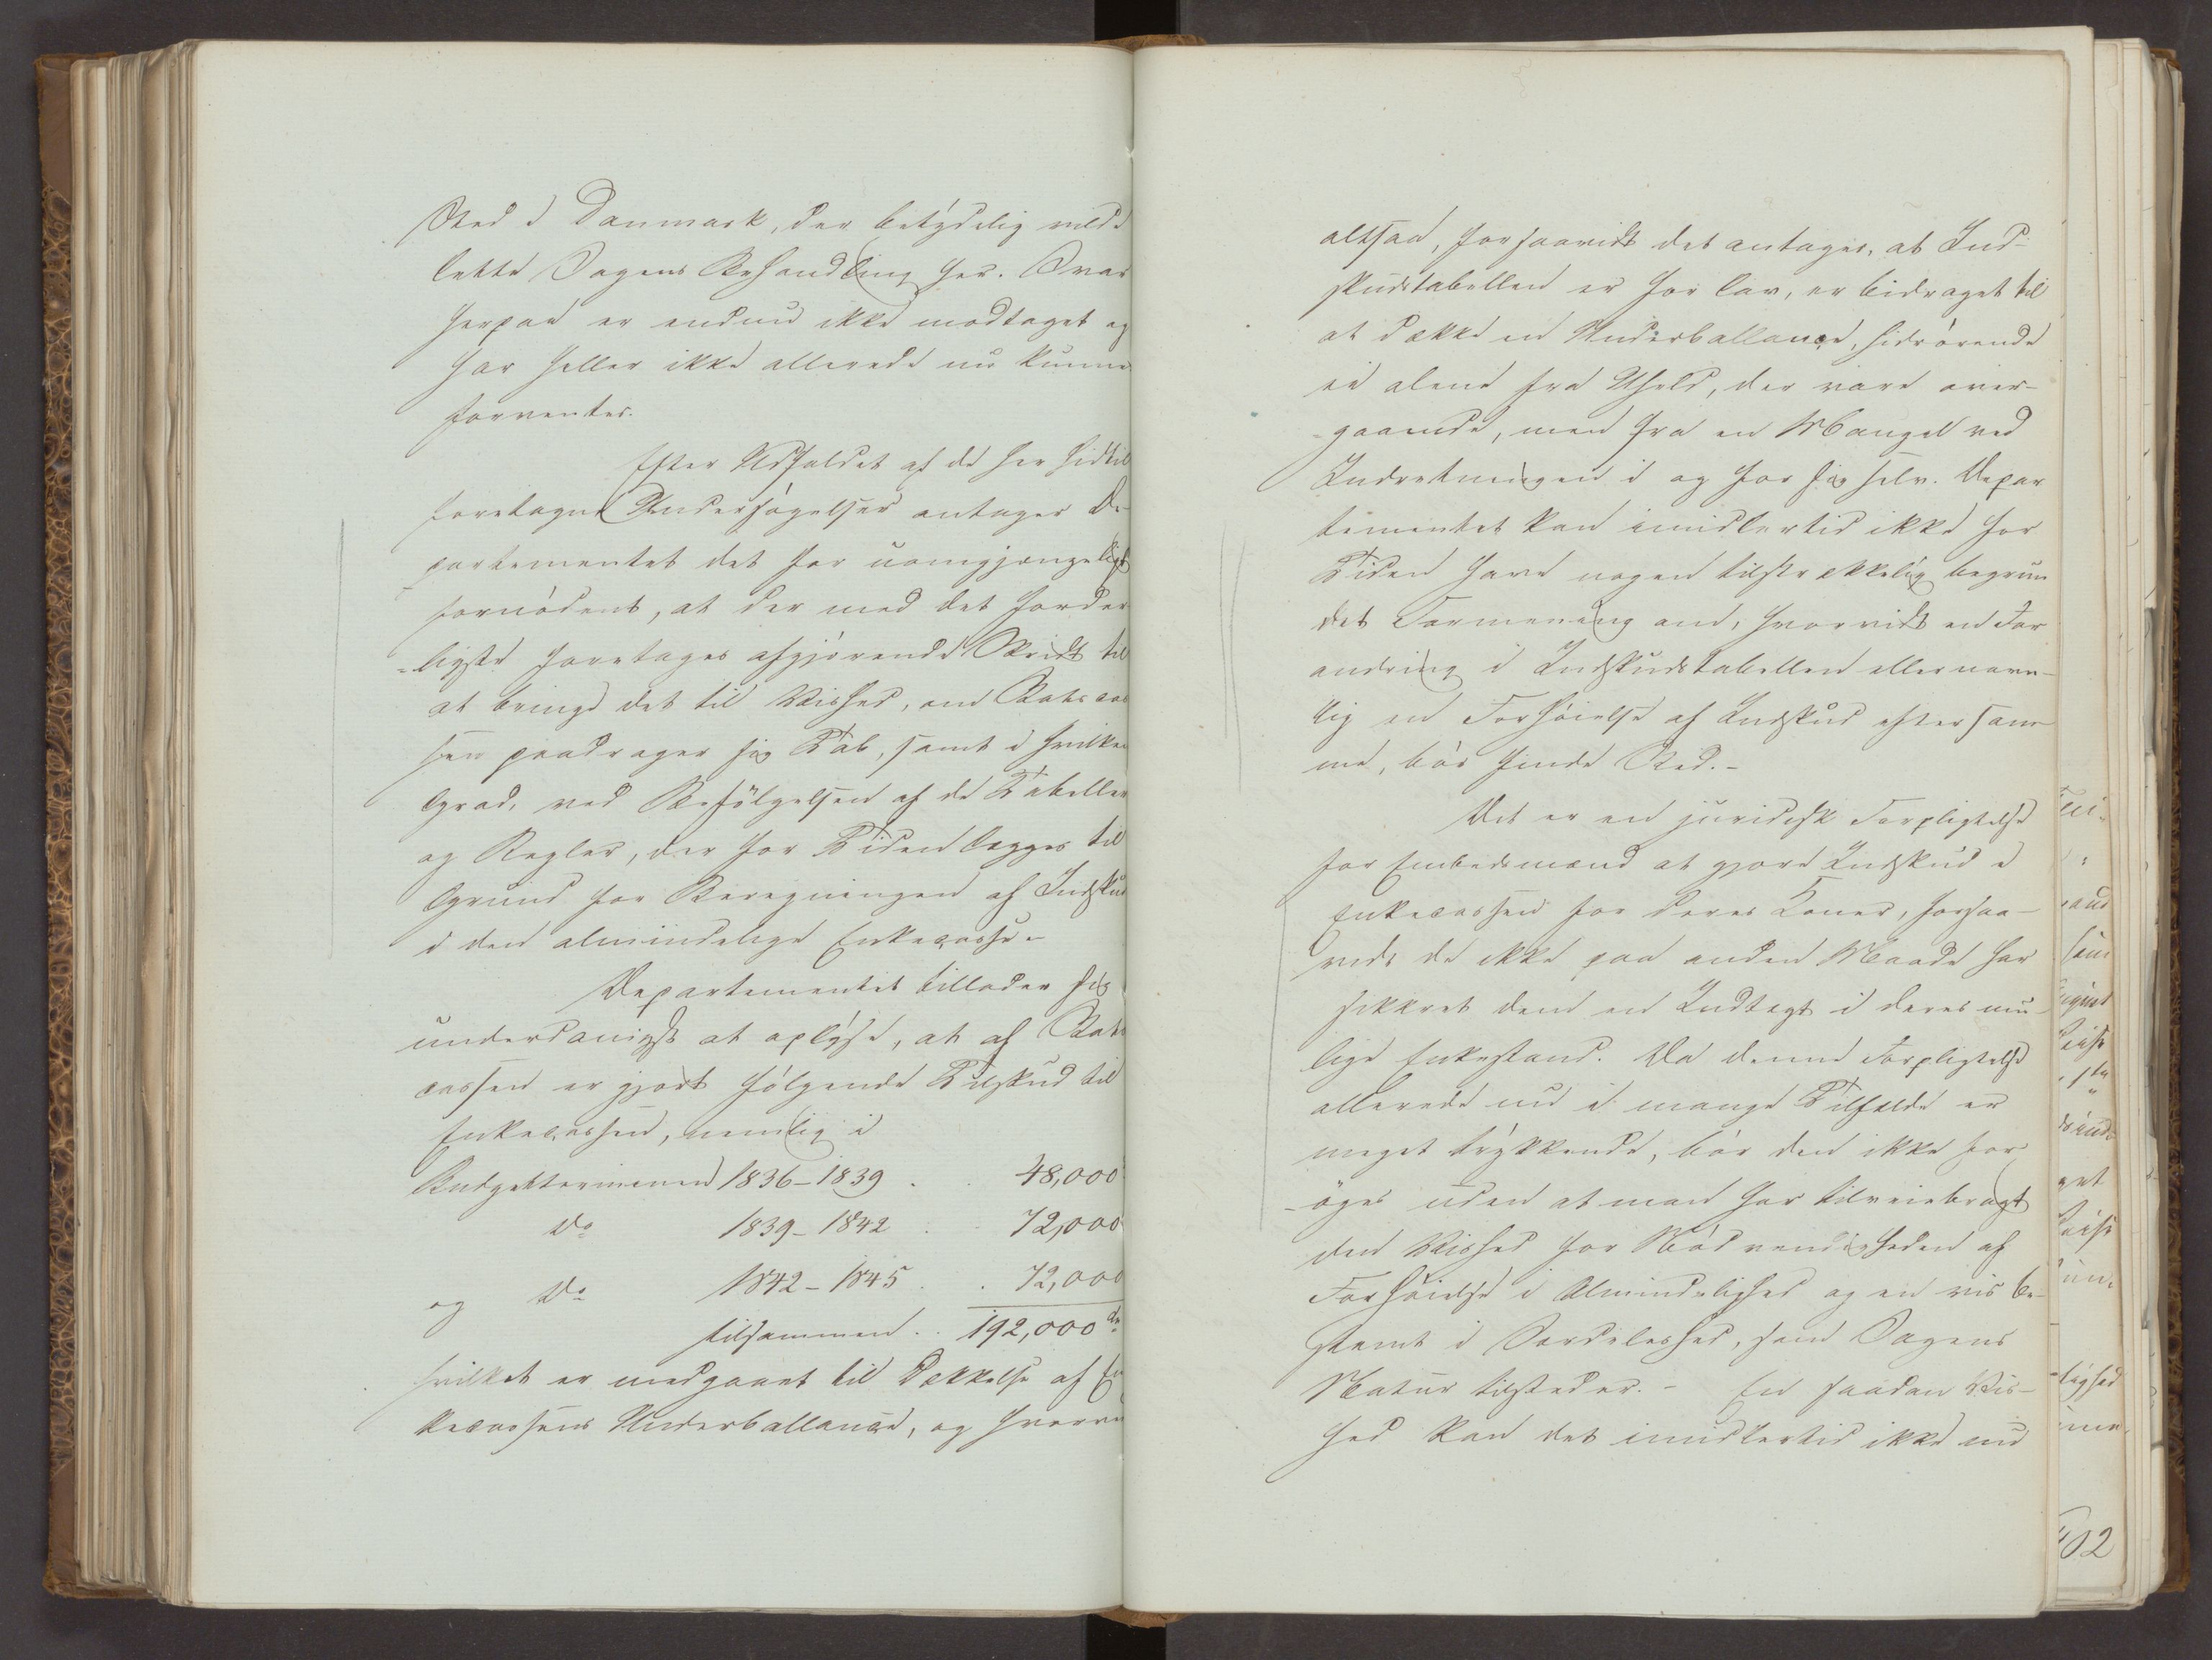 Sted i Danmark, der betydelig vilde
lette Sagens Behandling her. Svar
herpaa er endnu ikke modtaget og
har heller ikke allerede nu kunne
forventes.
Efter Udfaldet af de her hidtil
foretagne Undersøgelser antager De-
partementet det for uomgjængeligt
fornødent, at der med det forder-
ligste foretages afgjørende Skridt til
at bringe det til Vished, om Statscas
sen paadrager sig Tab, samt i hvilken
Grad, ved Befølgelsen af de Tabeller
og Regler, der for Tiden lægges til
Grund for Beregningen af Indskud
i den almindelige Enkecasse.
Departementet tillader sig
underdanigst at oplyse, at af Stats
cassen er gjort følgende Tilskud til
Enkecassen, nemlig i
Budgetterminen 1836-1839 . . 48,000
Do 1839-1842 . . 72,000
og Do 1842-1845 . . 72,000
tilsammen . . 192,000 dr
hvilket er medgaaet til Dækkelse af En
kecassens Underballance, og hvorved
altsaa, forsaavidt det antages, at Ind-
skudstabellen er for lav, er bidraget til
at dække en Underballance, hidrørende
ei alene fra Uheld, der være over-
gaaende, men fra en Mangel ved
Indretningen i og for sig selv. Depar
tementet kan imidlertid ikke for
Tiden have nogen tilstrækkelig begrun
det Formening om, hvorvidt en For
andring i Indskudstabellen eller navn-
lig en Forhøielse af Indskud efter sam-
me, bør finde Sted.-
Det er en juridisk Forpligtelse
for Embedsmænd at gjøre Indskud i
Enkecassen for deres Koner, forsaa-
vidt de ikke paa anden Maade har
sikkret dem en Indtægt i deres mu-
lige Enkestand. Da denne Forpligtelse
allerede nu i mange Tilfælde er
meget trykkende, bør den ikke for-
øges uden at man har tilveiebragt
den Vished for Nødvendigheden af
Forhøielse i Almindelighed og en vis be-
stemt i Særdeleshed, som Sagens
Natur tilsteder.- En saadan Vis-
hed kan det imidlertid ikke nu